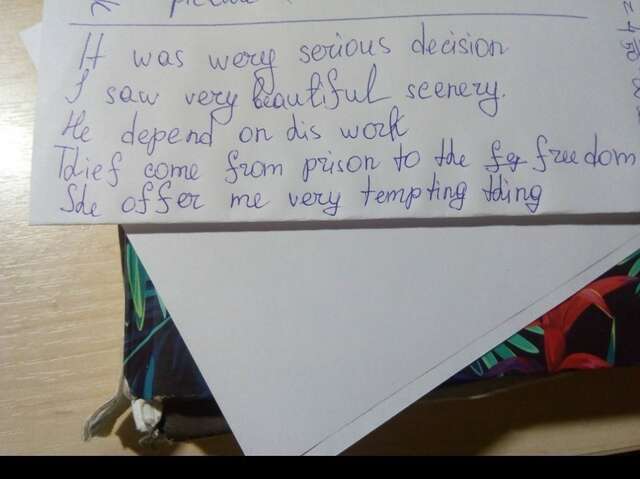 It was wery serious decision
I saw very beautiful scenery.
He depend on dis work
Tdief come from prison to tde freedom
Sde offer me very tempting tding